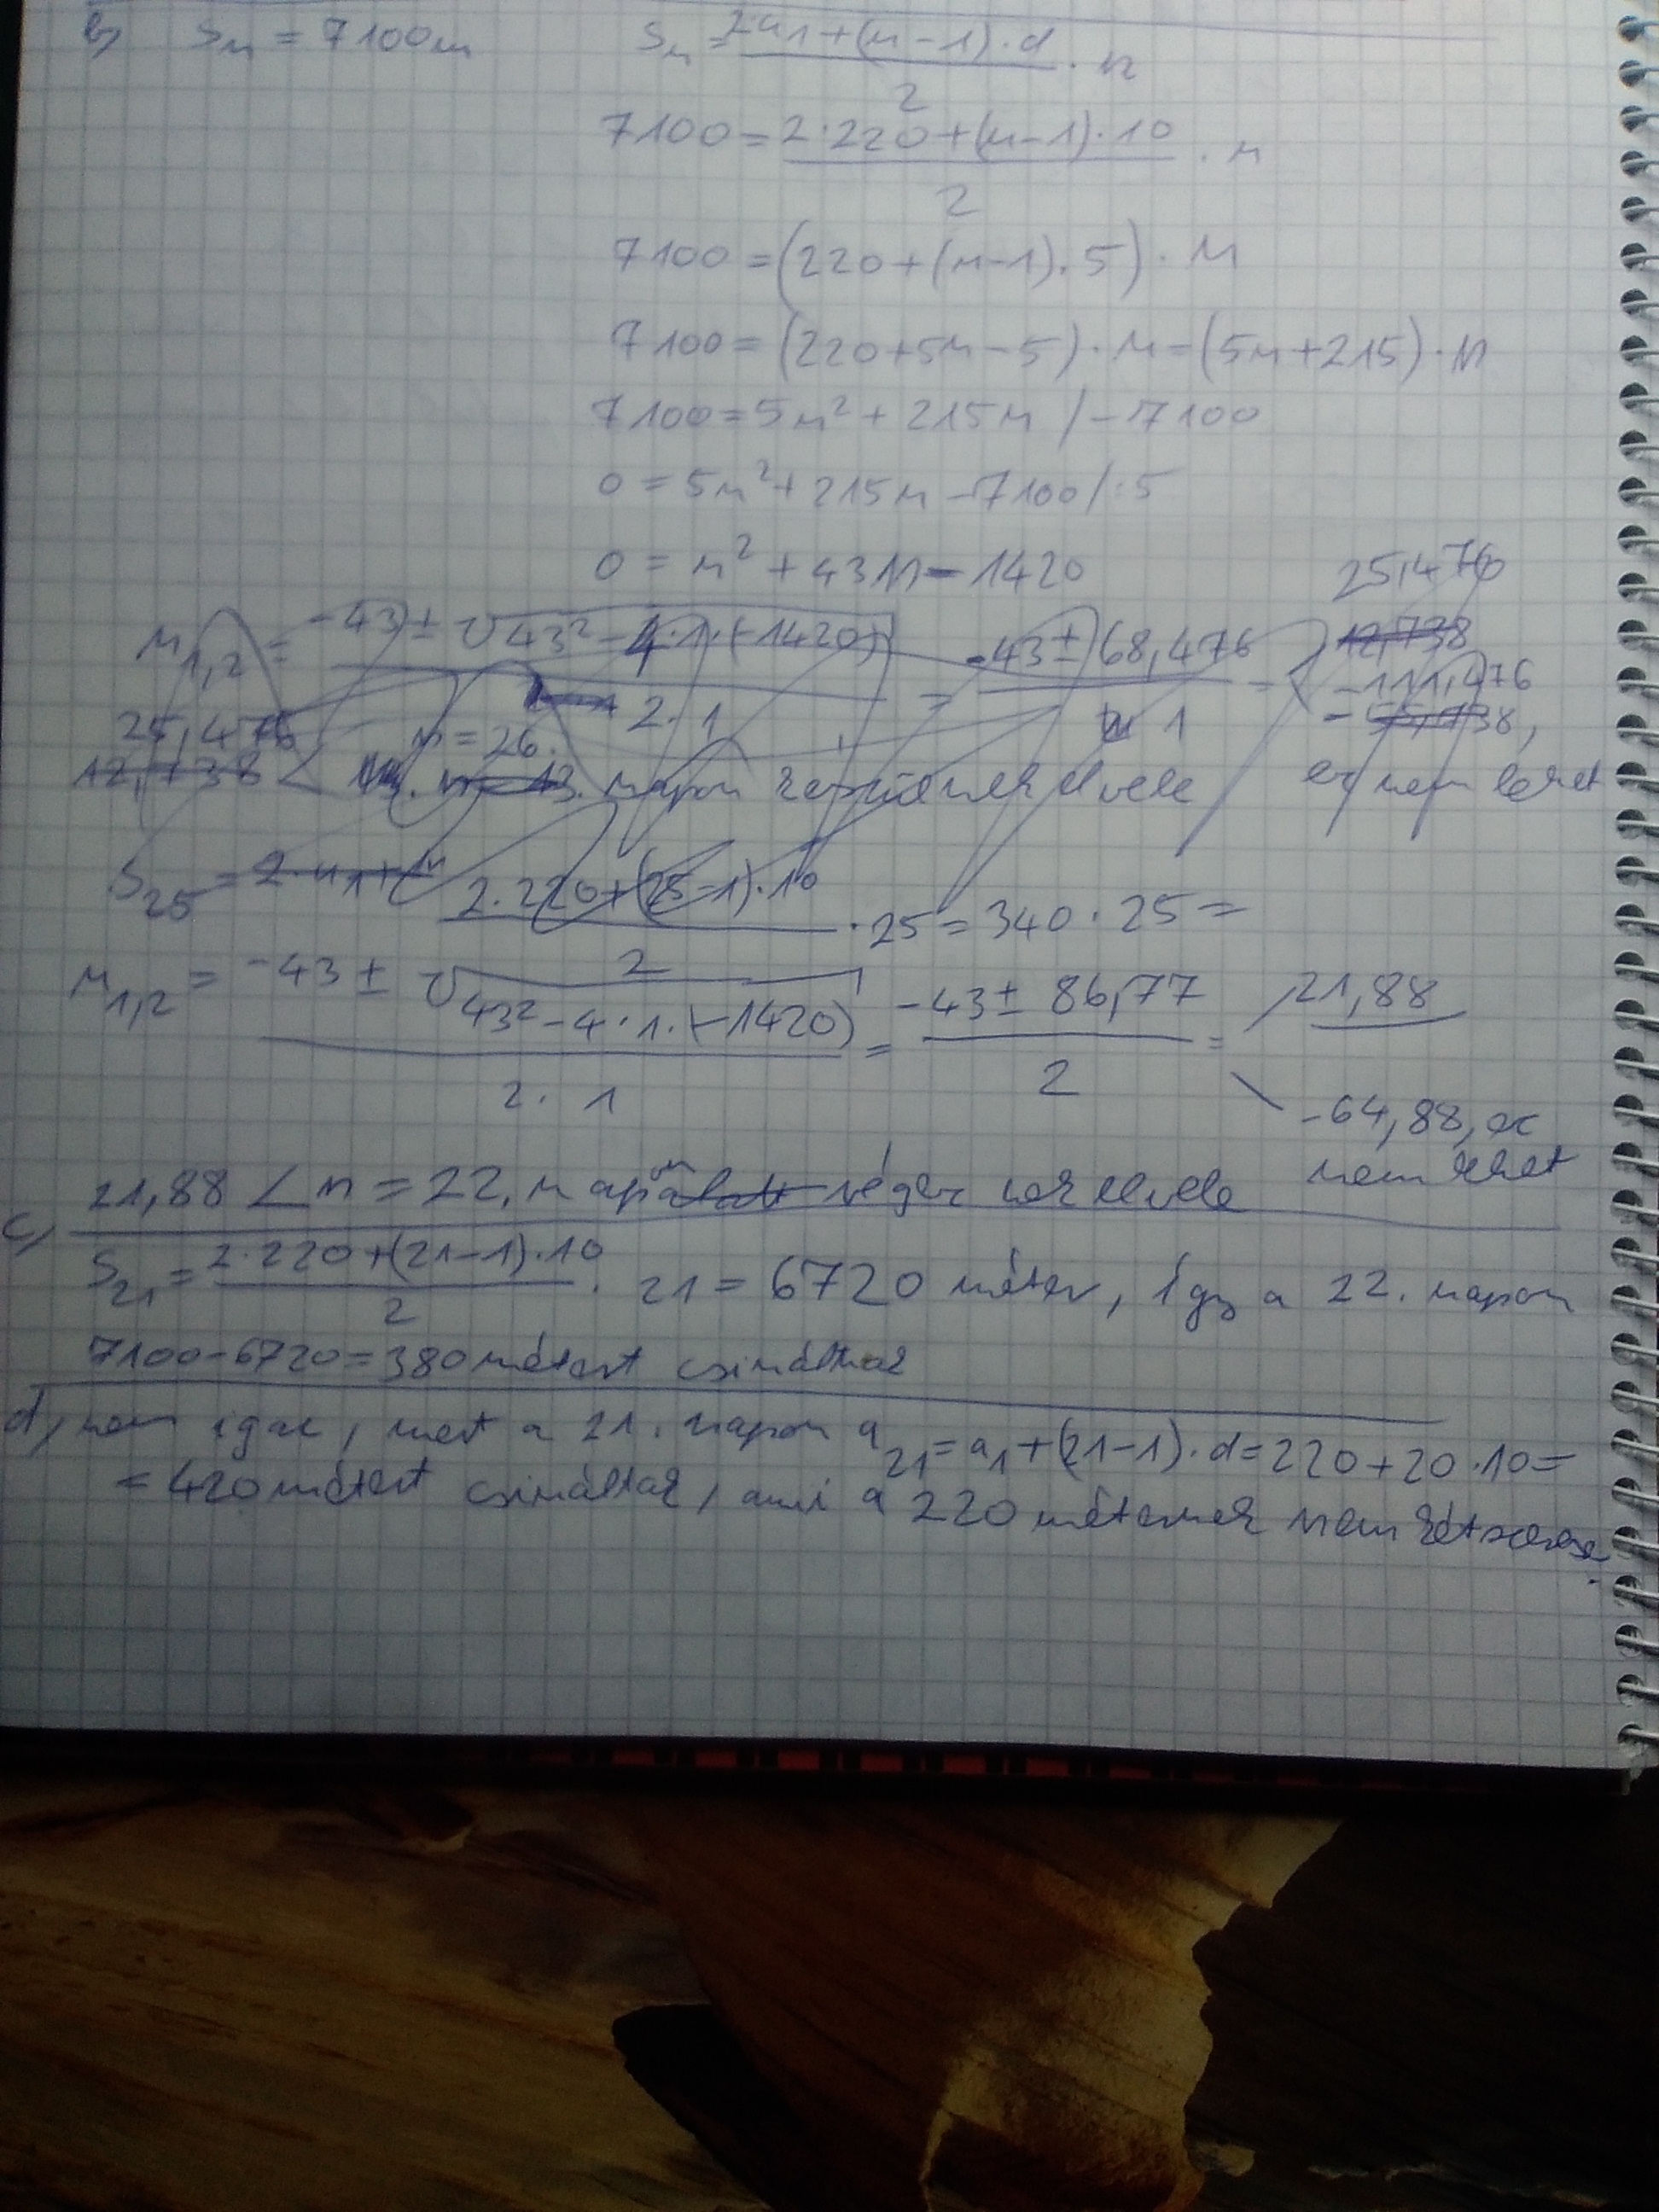 b) Sn = 7100m Sn = (2·a1+(n-1)·d)/2 · n
7100 = (2·220+(n-1)·10)/2 · n
7100 = (220+(n-1)·5)·n
7100 = (220+5n-5)·n = (5n+215)·n
7100 = 5n²+215n /-7100
0 = 5n²+215n-7100 /:5
0 = n²+43n-1420
n1,2 = (-43±√(43²-4·1·(-1420)))/(2·1) = (-43±68,476)/1 = 25,476
12,738
-111,476
-55,738,
25,476 n=26.
12,738 < n=13. napon ez nem lehet
S25 = (2·220+(25-1)·10)/2 · 25 = 340·25 =
n1,2 = (-43±√(43²-4·1·(-1420)))/(2·1) = (-43±86,77)/2 = 21,88
-64,88, ez nem lehet
21,88 < n = 22. napon végez vele
c) S21 = (2·220+(21-1)·10)/2 · 21 = 6720 méter, így a 22. napon
7100-6720=380 métert csináltak
d) nem igaz, mert a 21. napon a21=a1+(21-1)·d=220+20·10=
=420 métert csináltak, ami a 220 méternek nem kétszerese.